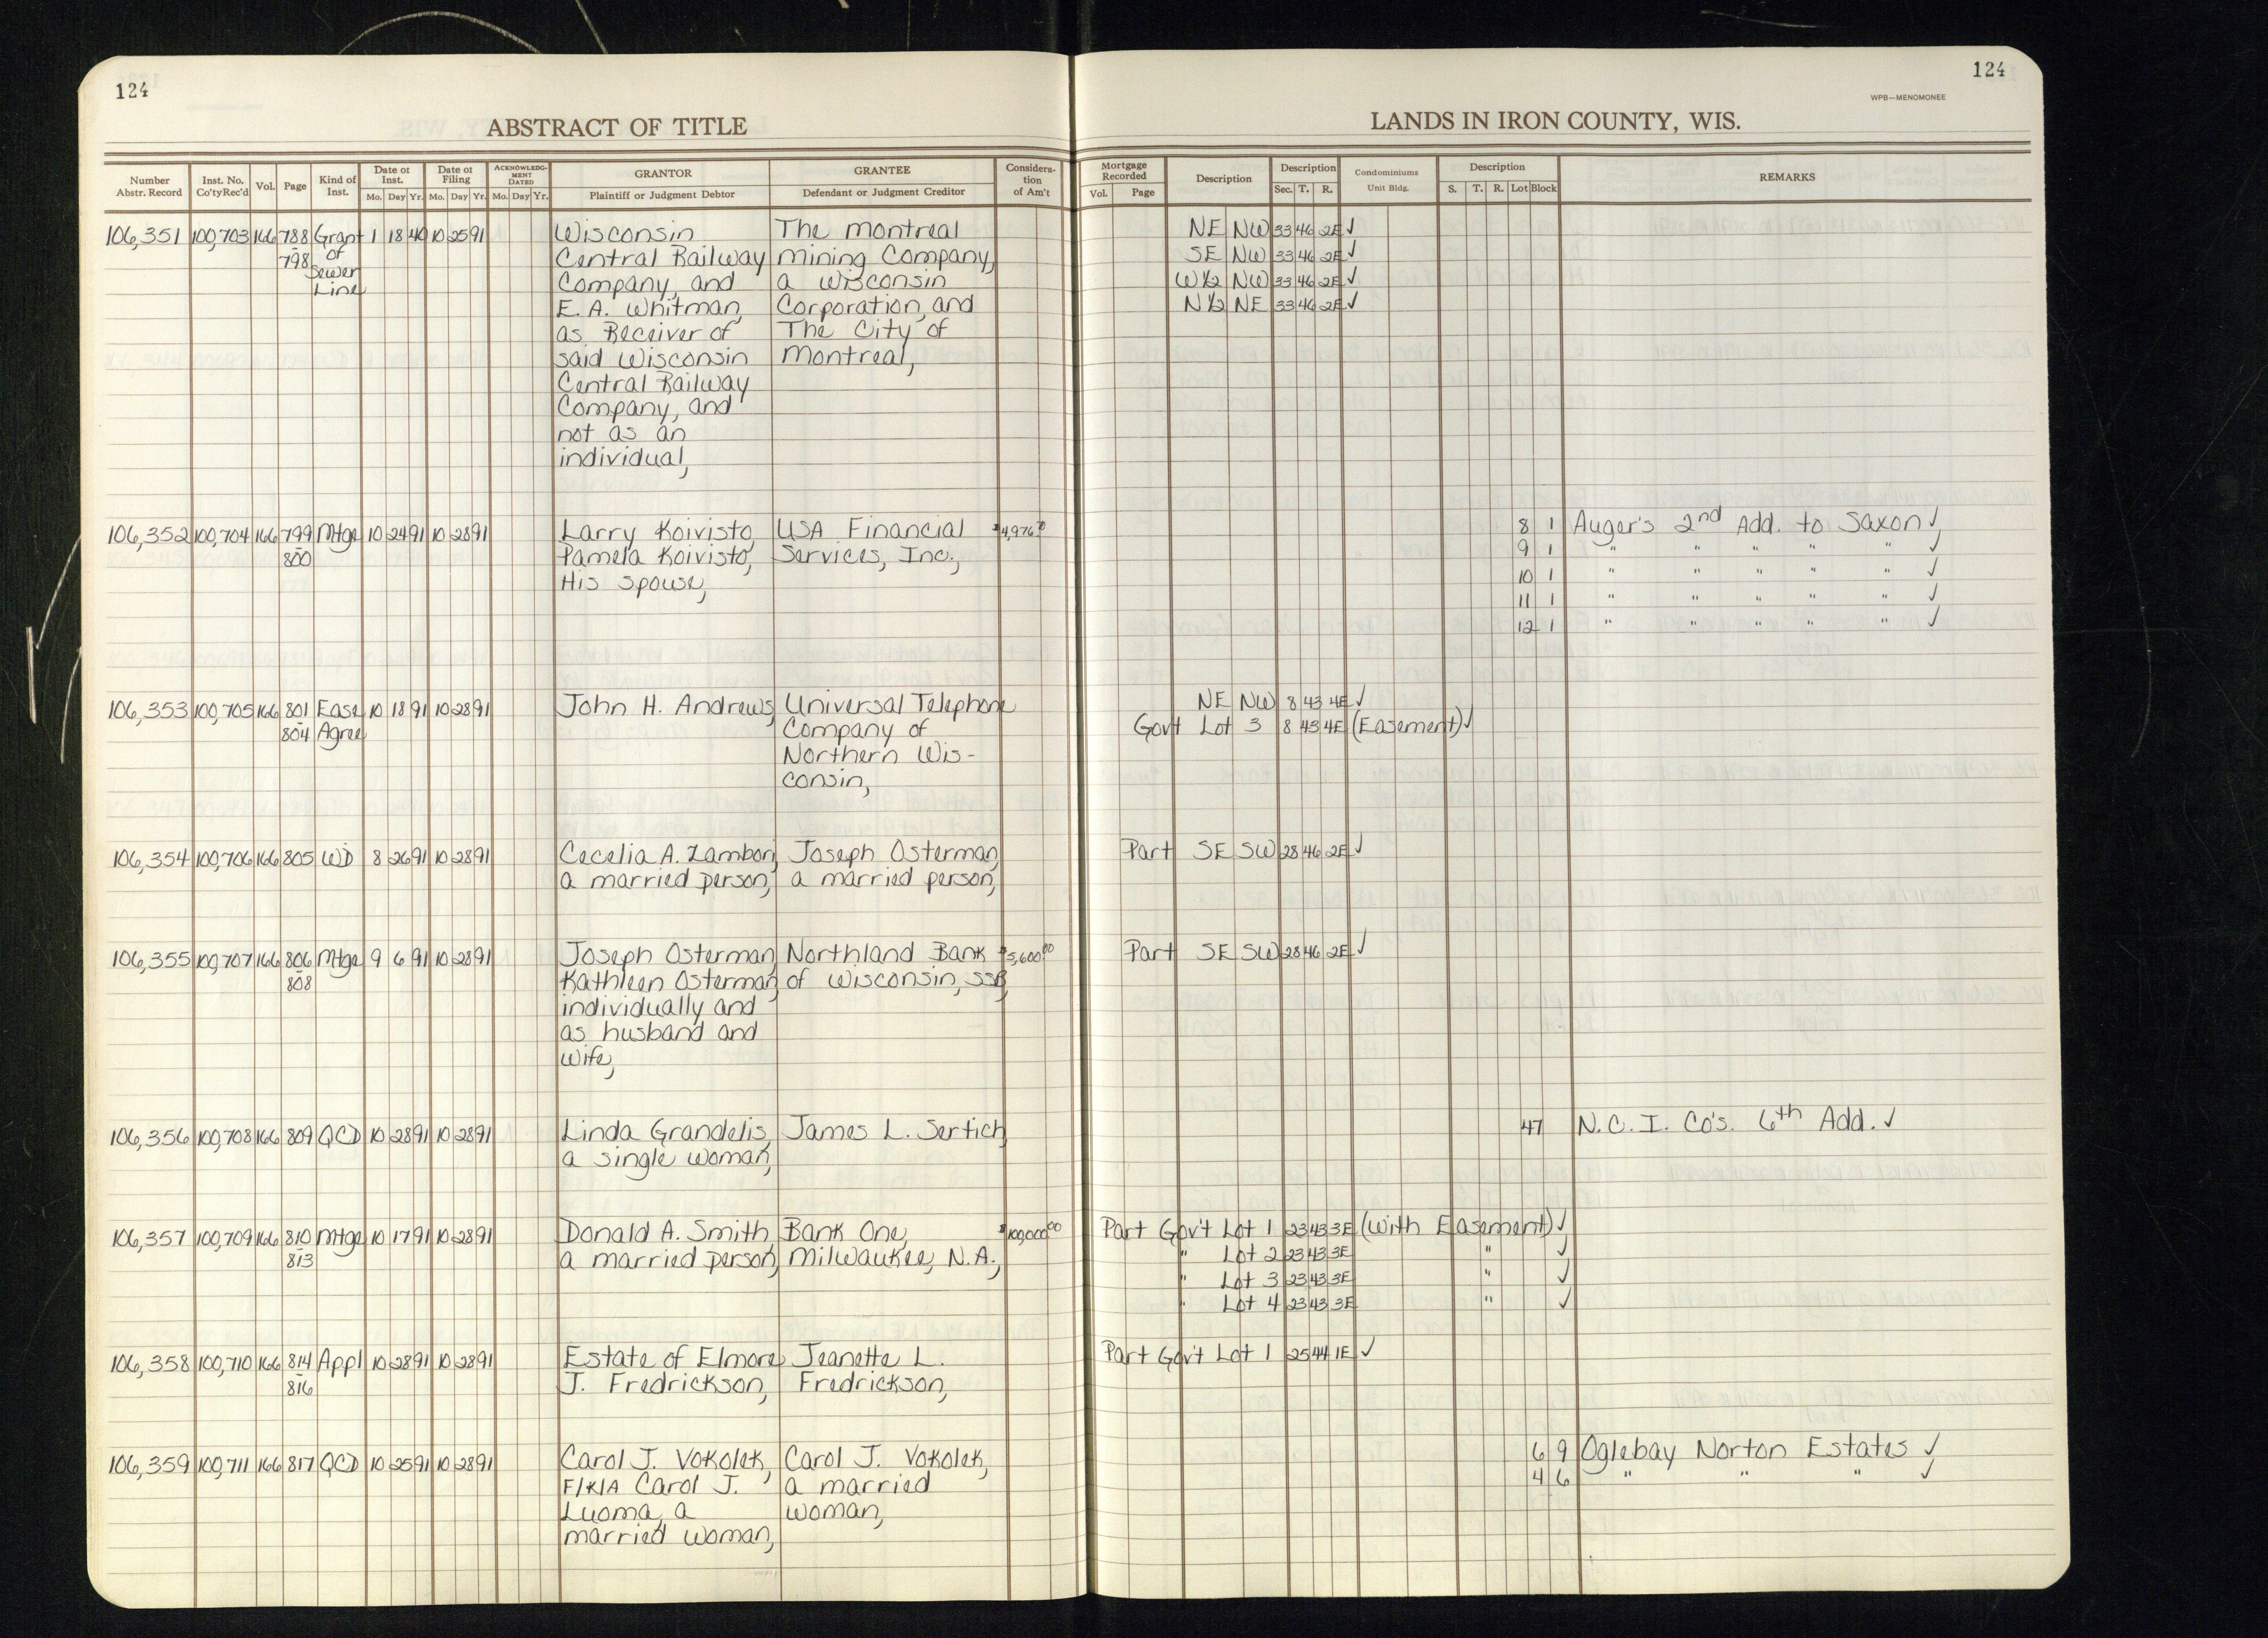 124
124
WPB—MENOMONEE
ABSTRACT OF TITLE
LANDS IN IRON COUNTY, WIS.
Number Abstr. Record | Inst. No. Co'tyRec'd | Vol. | Page | Kind of Inst. | Date of Inst. Mo. Day Yr. | Date of Filing Mo. Day Yr. | ACKNOWLEDGMENT DATED Mo. Day Yr. | GRANTOR Plaintiff or Judgment Debtor | GRANTEE Defendant or Judgment Creditor | Consideration of Am't | Mortgage Recorded Vol. Page | Description | Description Sec. T. R. | Condominiums Unit Bldg. | Description S. T. R. Lot Block | REMARKS
106,351 100,703 166 788 Grant 1 18 40 10 25 91 Wisconsin The Montreal NE NW 33 46 2E ✓
- 798 of Sewer Line Central Railway Mining Company, SE NW 33 46 2E ✓
Company, and a Wisconsin W½ NW 33 46 2E ✓
E. A. Whitman, Corporation, and N½ NE 33 46 2E ✓
as Receiver of The City of
said Wisconsin Montreal,
Central Railway
Company, and
not as an
individual,
106,352 100,704 166 799 Mtge 10 24 91 10 28 91 Larry Koivisto, USA Financial $4,976 8 1 Auger's 2nd Add. to Saxon ✓
- 800 Pamela Koivisto, Services, Inc., 9 1 " " " " " ✓
His Spouse, 10 1 " " " " " ✓
11 1 " " " " " ✓
12 1 " " " " " ✓
106,353 100,705 166 801 Ease 10 18 91 10 28 91 John H. Andrews, Universal Telephone NE NW 8 43 4E ✓
- 804 Agree Company of Govt Lot 3 8 43 4E (Easement) ✓
Northern Wis-
consin,
106,354 100,706 166 805 WD 8 26 91 10 28 91 Cecelia A. Zambon, Joseph Osterman, Part SE SW 28 46 2E ✓
a married person, a married person,
106,355 100,707 166 806 Mtge 9 6 91 10 28 91 Joseph Osterman, Northland Bank $5,600.00 Part SE SW 28 46 2E ✓
- 808 Kathleen Osterman, of Wisconsin, SSB,
individually and
as husband and
wife,
106,356 100,708 166 809 QCD 10 28 91 10 28 91 Linda Grandelis, James L. Sertich, 47 N.C.I. Co's. 6th Add. ✓
a single woman,
106,357 100,709 166 810 Mtge 10 17 91 10 28 91 Donald A. Smith Bank One, $100,000.00 Part Gov't Lot 1 23 43 3E (With Easement) ✓
- 813 a married person, Milwaukee, N.A., " Lot 2 23 43 3E " ✓
" Lot 3 23 43 3E " ✓
" Lot 4 23 43 3E " ✓
106,358 100,710 166 814 Appl 10 28 91 10 28 91 Estate of Elmore Jeanette L. Part Gov't Lot 1 25 44 1E ✓
- 816 J. Fredrickson, Fredrickson,
106,359 100,711 166 817 QCD 10 25 91 10 28 91 Carol J. Vokolek, Carol J. Vokolek, 6 9 Oglebay Norton Estates ✓
F/K/A Carol J. a married 4 6 " " " ✓
Luoma, a woman,
married woman,